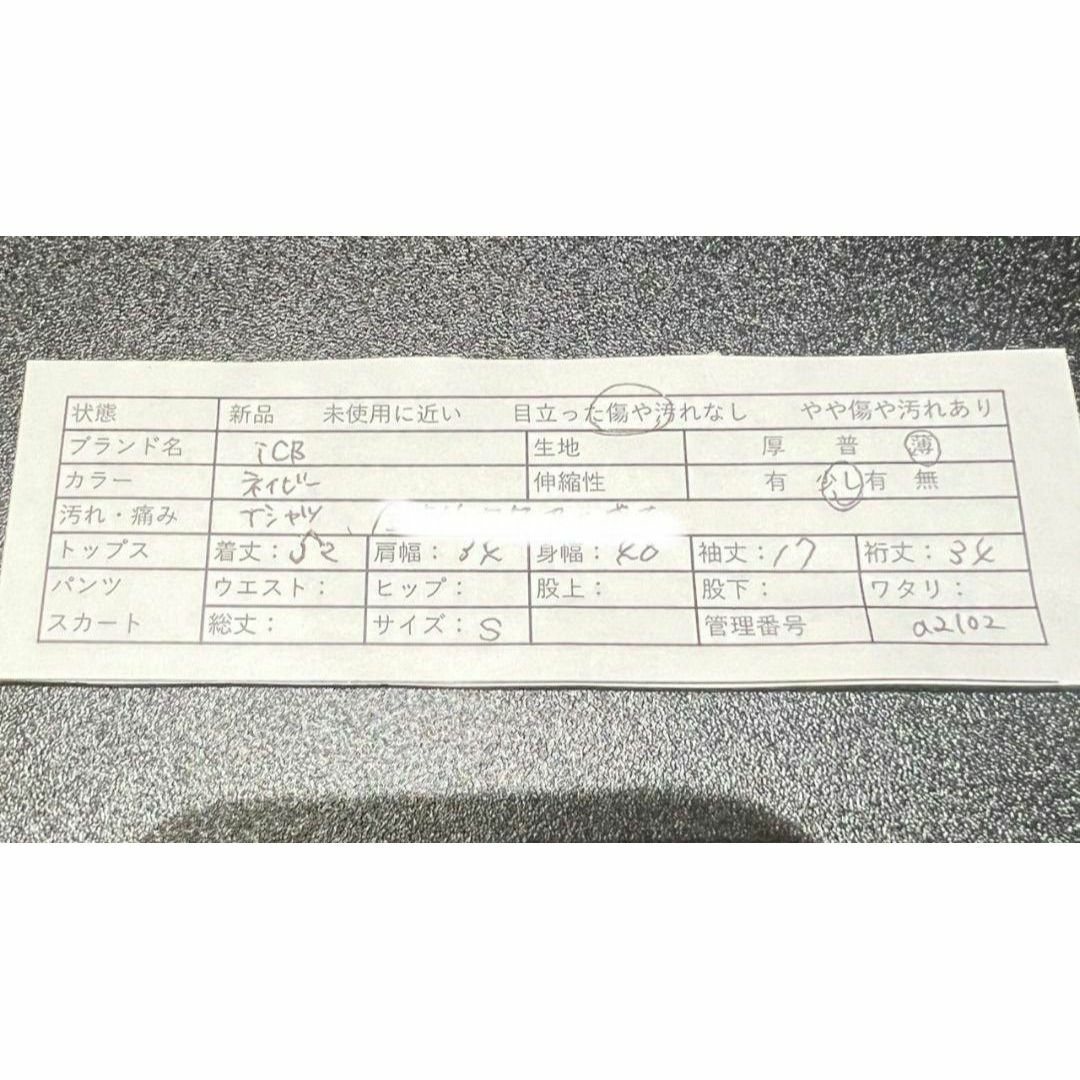 状態 新品 未使用に近い 目立った傷や汚れなし やや傷や汚れあり
ブランド名 iCB 生地 厚 普 薄
カラー ネイビー 伸縮性 有 少し有 無
汚れ・痛み Tシャツ
トップス 着丈：52 肩幅：34 身幅：40 袖丈：17 裄丈：34
パンツ ウエスト： ヒップ： 股上： 股下： ワタリ：
スカート 総丈： サイズ：S 管理番号 a2102